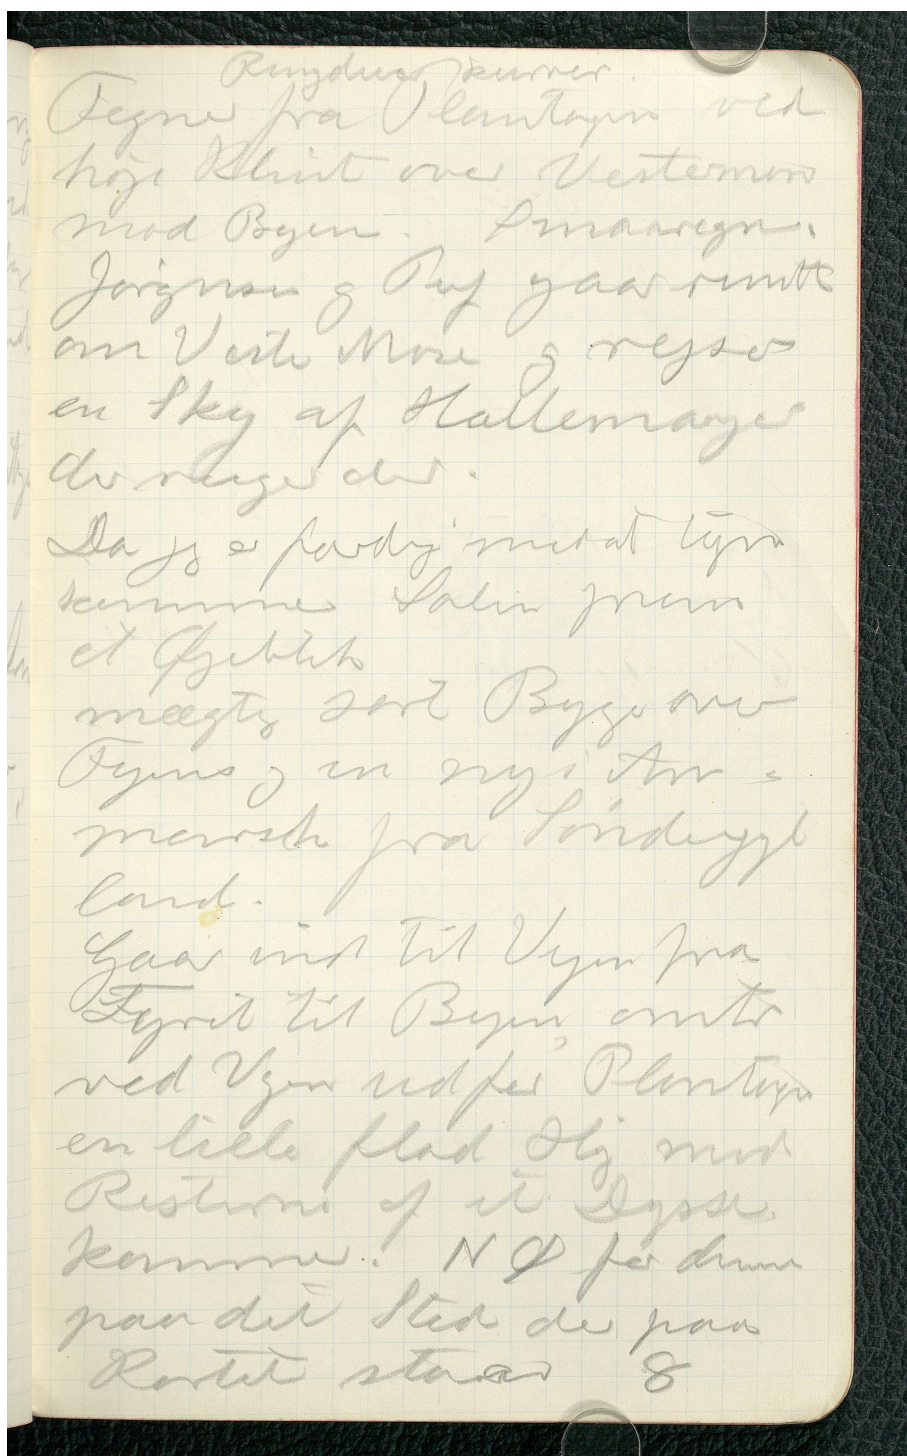 Ringduer kurrer.
Tegner fra Plantagen ved
høje Klint over Vestermose
mod Byen. Smaaregn.
Jørgensen og Puf gaar rundt
om Veste Mose og rejser
en Sky af Hættemaager
der ruger der.
Da jeg er færdig med at tegne
kommer Solen frem
et Øjeblik
mægtig sort Byge over
Fyens og en ny i An-
march fra Sønderjyl
land.
Gaar ind til Vejen fra
Fyret til Byen, omtr
ved Vejen ud for Plantagen
en lille flad Høj med
Resterne af et Dysse
kammer. NØ for denne
paa det Sted der paa
Kortet staar 8